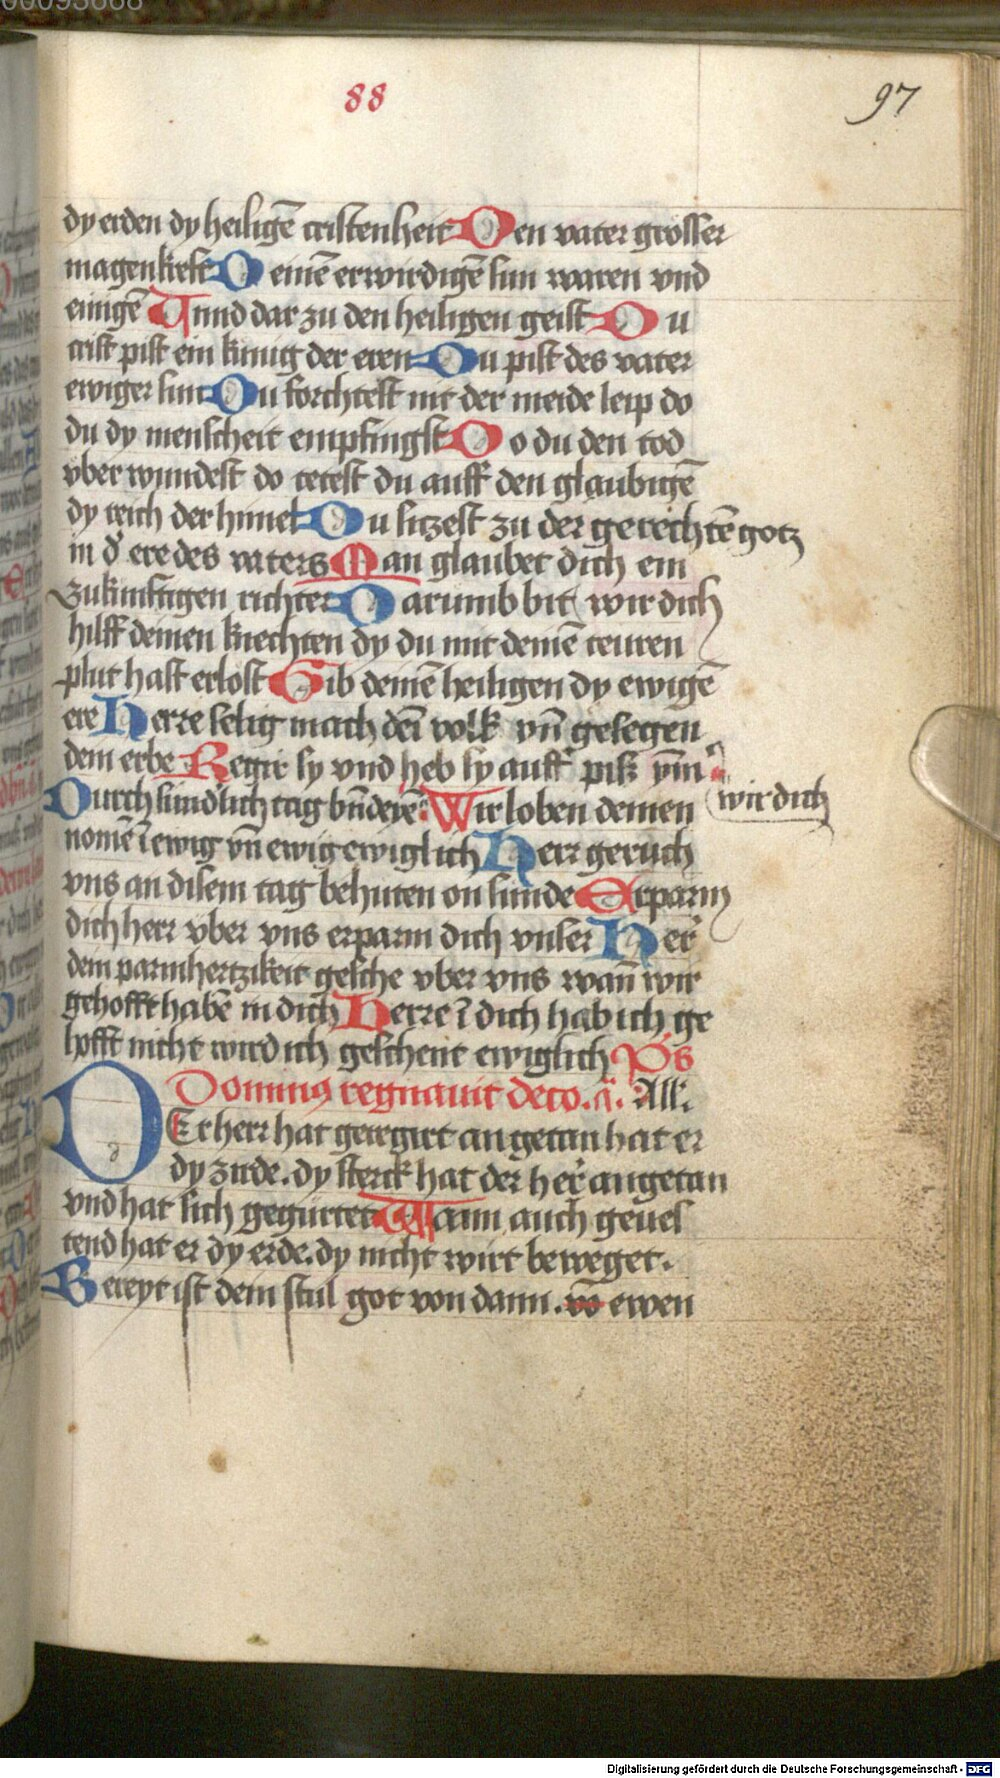 00093668
88
97
dy erden dy heiligē cristenheit Den vater grosser
magenkreft Deinē erwirdigē sun waren vnd
einigē Vnnd dar zu den heiligen geist Du
crist pist ein kunig der eren Du pist des vater
ewiger sun Du forchtest nit der meide leip do
du dy menscheit empfingst Do du den tod
vber wundest do tetest du auff den glaubigē
dy reich der himel Du sitzest zu der gerechtē gotz
in d' ere des vaters Man glaubet dich ein
zukunftigen richter Darumb bit wir dich
hilff deinen knechten dy du mit deinē teuren
plut hast erlost Gib deinē heiligen dy ewigē
ere Herre selig mach dei volk vn̄ gesegen
dem erbe Regir sy vnd heb sy auff pisz ym
Durch sundlich tag Wir loben deinen
wir dich
nomē ī ewig vn̄ ewig ewiglich Herr geruch
vns an disem tag behuten on sunde Erparm
dich herr vber vns erparm dich vnser Her'
dein parmhertzikeit gesche vber vns wan̄ wir
gehofft habē in dich Herre ī dich hab ich ge
hofft nicht wird ich geschent ewiglich Ps
Dominus regnauit deco. a. All.
DEr herr hat geregirt angetan hat er
dy zirde. dy sterck hat der her' angetan
vnd hat sich gegurtet Wann auch geues
tend hat er dy erde. dy nicht wirt beweget.
Bereyt ist dein stul got von dann. ewen
Digitalisierung gefördert durch die Deutsche Forschungsgemeinschaft - DFG